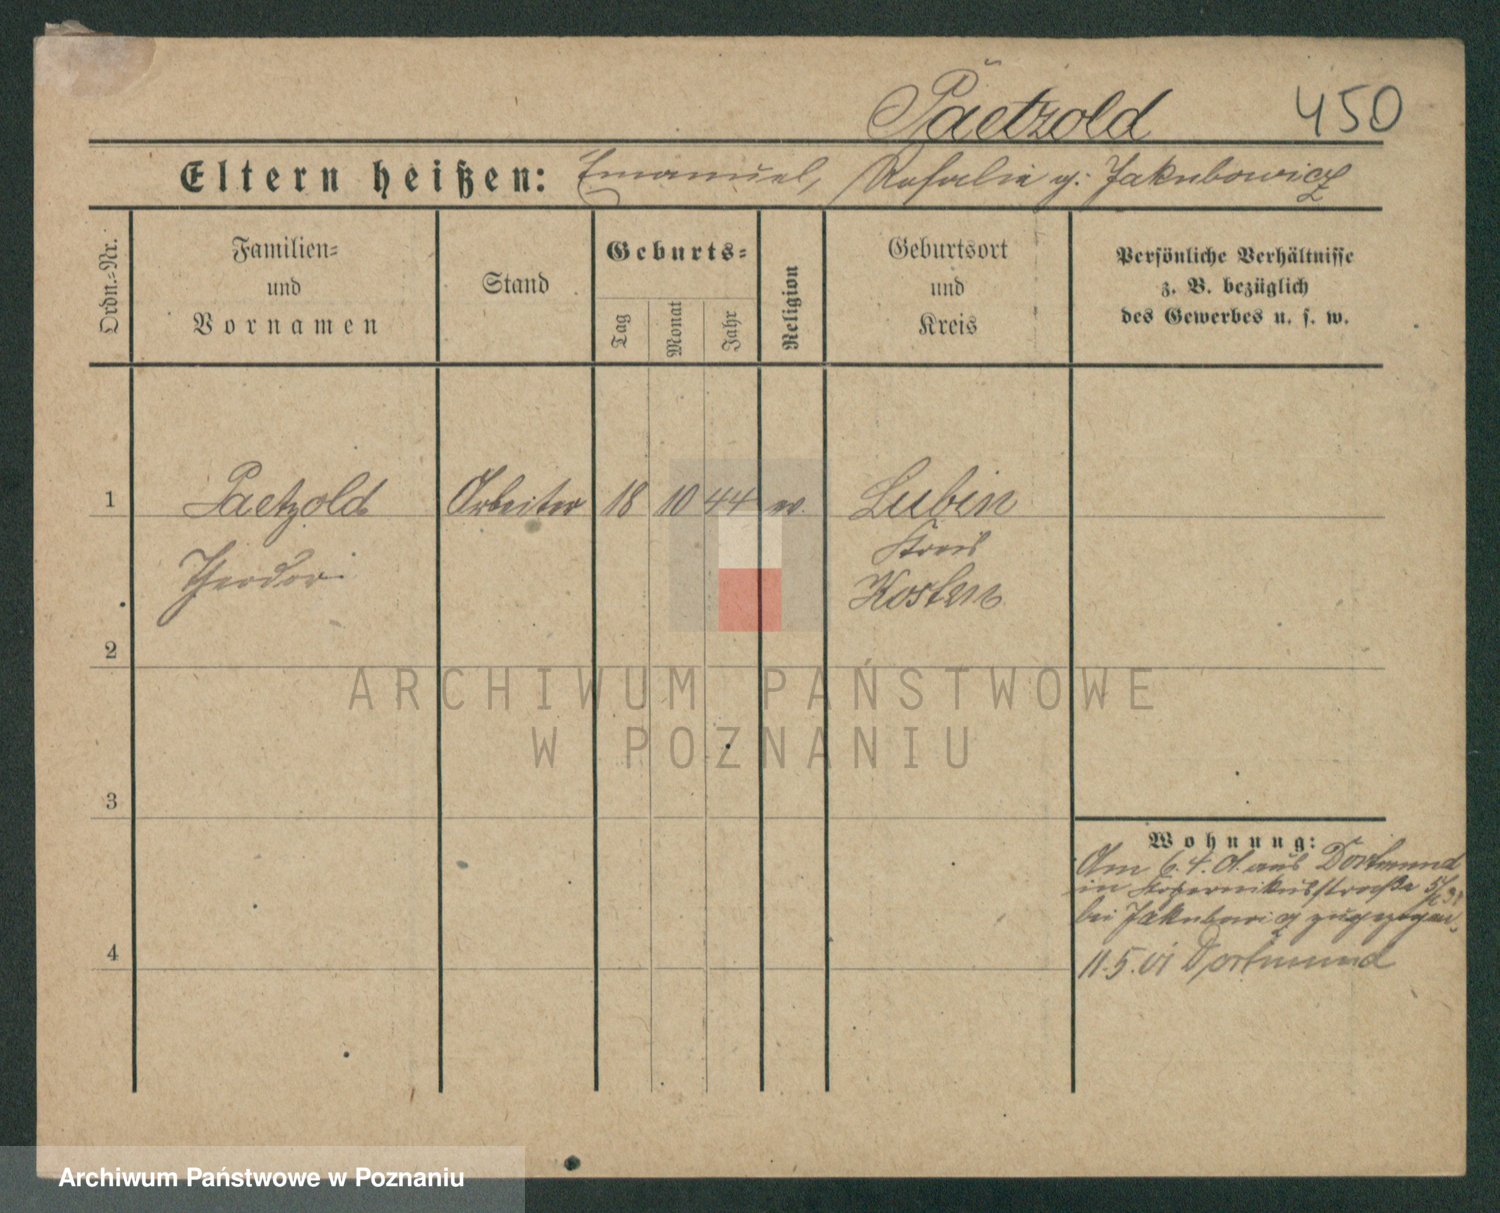 Paetzold 450
Eltern heißen: Emanuel, Rosalie g. Jakubowicz
Ordn.-Nr.
Familien-
und
Vornamen
Stand
Geburts-
Tag
Monat
Jahr
Religion
Geburtsort
und
Kreis
Persönliche Verhältnisse
z. B. bezüglich
des Gewerbes u. s. w.
1 Paetzold Arbeiter 18 10 44 ev. Lubin
Theodor Kreis
Kosten
2
ARCHIWUM PAŃSTWOWE
W POZNANIU
3
Wohnung:
Am 6. 4. 01 aus Dortmund
in Kopernikusstraße
bei Jakubowicz zugezogen.
4
11.5.01 Dortmund
Archiwum Państwowe w Poznaniu